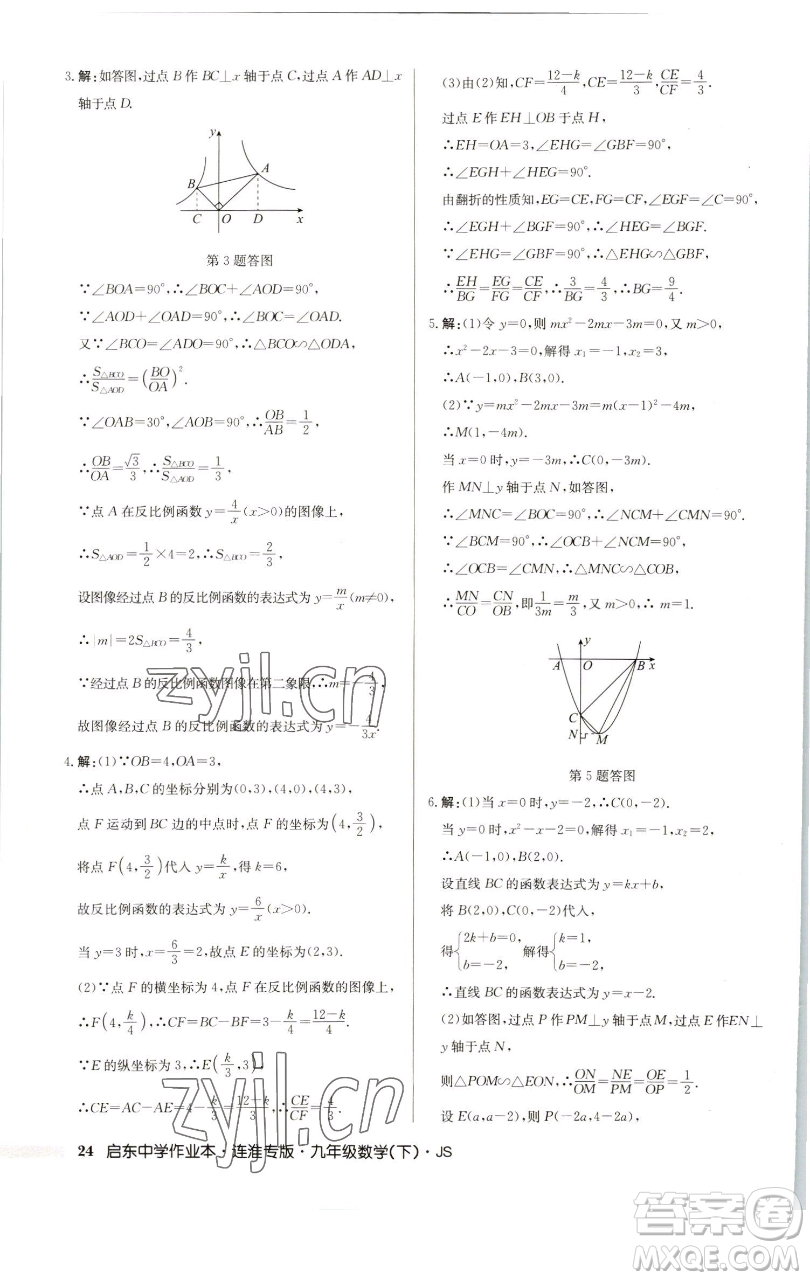 3. 解:如答图,过点 B 作 BC⊥x 轴于点 C,过点 A 作 AD⊥x
轴于点 D.
y
A
B
C O D x
第 3 题答图
∵∠BOA=90°,∴∠BOC+∠AOD=90°,
∵∠AOD+∠OAD=90°,∴∠BOC=∠OAD.
又∵∠BCO=∠ADO=90°,∴△BCO∽△ODA,
∴S△BCO/S△AOD=(BO/OA)².
∵∠OAB=30°,∠AOB=90°,∴OB/AB=1/2,
∴OB/OA=√3/3,∴S△BCO/S△AOD=1/3,
∵点 A 在反比例函数 y=4/x(x>0)的图像上,
∴S△AOD=1/2×4=2,∴S△BCO=2/3,
设图像经过点 B 的反比例函数的表达式为 y=m/x(m≠0),
∴|m|=2S△BCO=4/3,
∵经过点 B 的反比例函数图像在第二象限,∴m=-4/3,
故图像经过点 B 的反比例函数的表达式为 y=-4/3x.
4. 解:(1)∵OB=4,OA=3,
∴点 A,B,C 的坐标分别为(0,3),(4,0),(4,3),
点 F 运动到 BC 边的中点时,点 F 的坐标为(4,3/2),
将点 F(4,3/2)代入 y=k/x,得 k=6,
故反比例函数的表达式为 y=6/x(x>0).
当 y=3 时,x=6/3=2,故点 E 的坐标为(2,3).
(2)∵点 F 的横坐标为 4,点 F 在反比例函数的图像上,
∴F(4,k/4),∴CF=BC-BF=3-k/4=12-k/4.
∵E 的纵坐标为 3,∴E(k/3,3),
∴CE=AC-AE=4-k/3=12-k/3,∴CE/CF=4/3.
(3)由(2)知,CF=12-k/4,CE=12-k/3,CE/CF=4/3.
过点 E 作 EH⊥OB 于点 H,
∴EH=OA=3,∠EHG=∠GBF=90°,
∴∠EGH+∠HEG=90°.
由翻折的性质知,EG=CE,FG=CF,∠EGF=∠C=90°,
∴∠EGH+∠BGF=90°,∴∠HEG=∠BGF.
∵∠EHG=∠GBF=90°,∴△EHG∽△GBF,
∴EH/BG=EG/FG=CE/CF,∴3/BG=4/3,∴BG=9/4.
5. 解:(1)令 y=0,则 mx²-2mx-3m=0,又 m>0,
∴x²-2x-3=0,解得 x₁=-1,x₂=3,
∴A(-1,0),B(3,0).
(2)∵y=mx²-2mx-3m=m(x-1)²-4m,
∴M(1,-4m).
当 x=0 时,y=-3m,∴C(0,-3m).
作 MN⊥y 轴于点 N,如答图,
∴∠MNC=∠BOC=90°,∴∠NCM+∠CMN=90°.
∵∠BCM=90°,∴∠NCM+∠BCO=90°,
∴∠BCO=∠CMN,∴△MNC∽△COB,
∴MN/CO=CN/OB,即1/3m=m/3,又 m>0,∴ m=1.
y
A O B x
C
N
M
第 5 题答图
6. 解:(1)当 x=0 时,y=-2,∴C(0,-2).
当 y=0 时,x²-x-2=0,解得 x₁=-1,x₂=2,
∴A(-1,0),B(2,0).
设直线 BC 的函数表达式为 y=kx+b,
将 B(2,0),C(0,-2)代入,
得{2k+b=0, b=-2, 解得{k=1, b=-2,
∴直线 BC 的函数表达式为 y=x-2.
(2)如答图,过点 P 作 PM⊥y 于点 M,过点 E 作 EN⊥
y 轴于点 N,
则△POM∽△EON,∴ON/OM=NE/PM=OE/OP=1/2.
设 E(a,a-2),则 P(-2a,4-2a),
24 启东中学作业本·连淮专版·九年级数学(下)·JS
zyjl.cn
zyjl.cn
答案圈
MXQE.COM